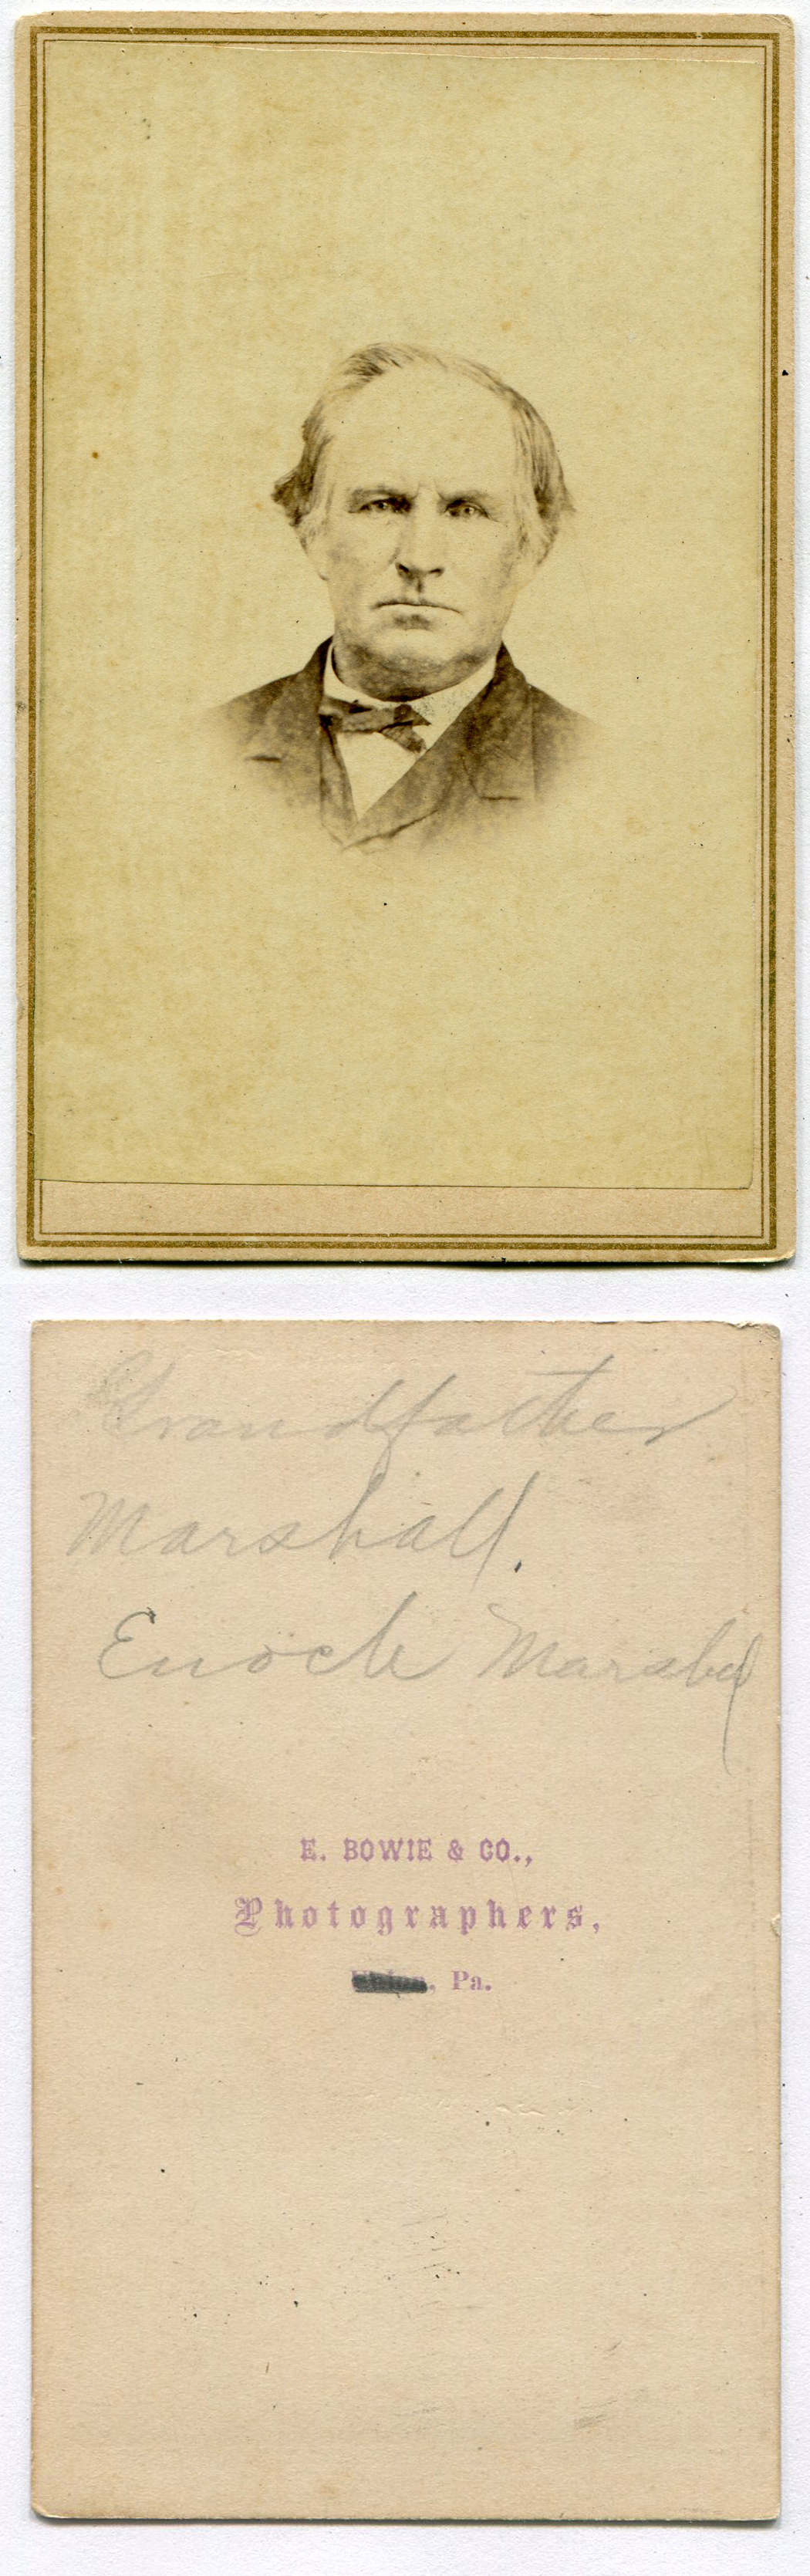 Grandfather
Marshall.
Enoch Marshall
E. BOWIE & CO.,
Photographers,
Pa.